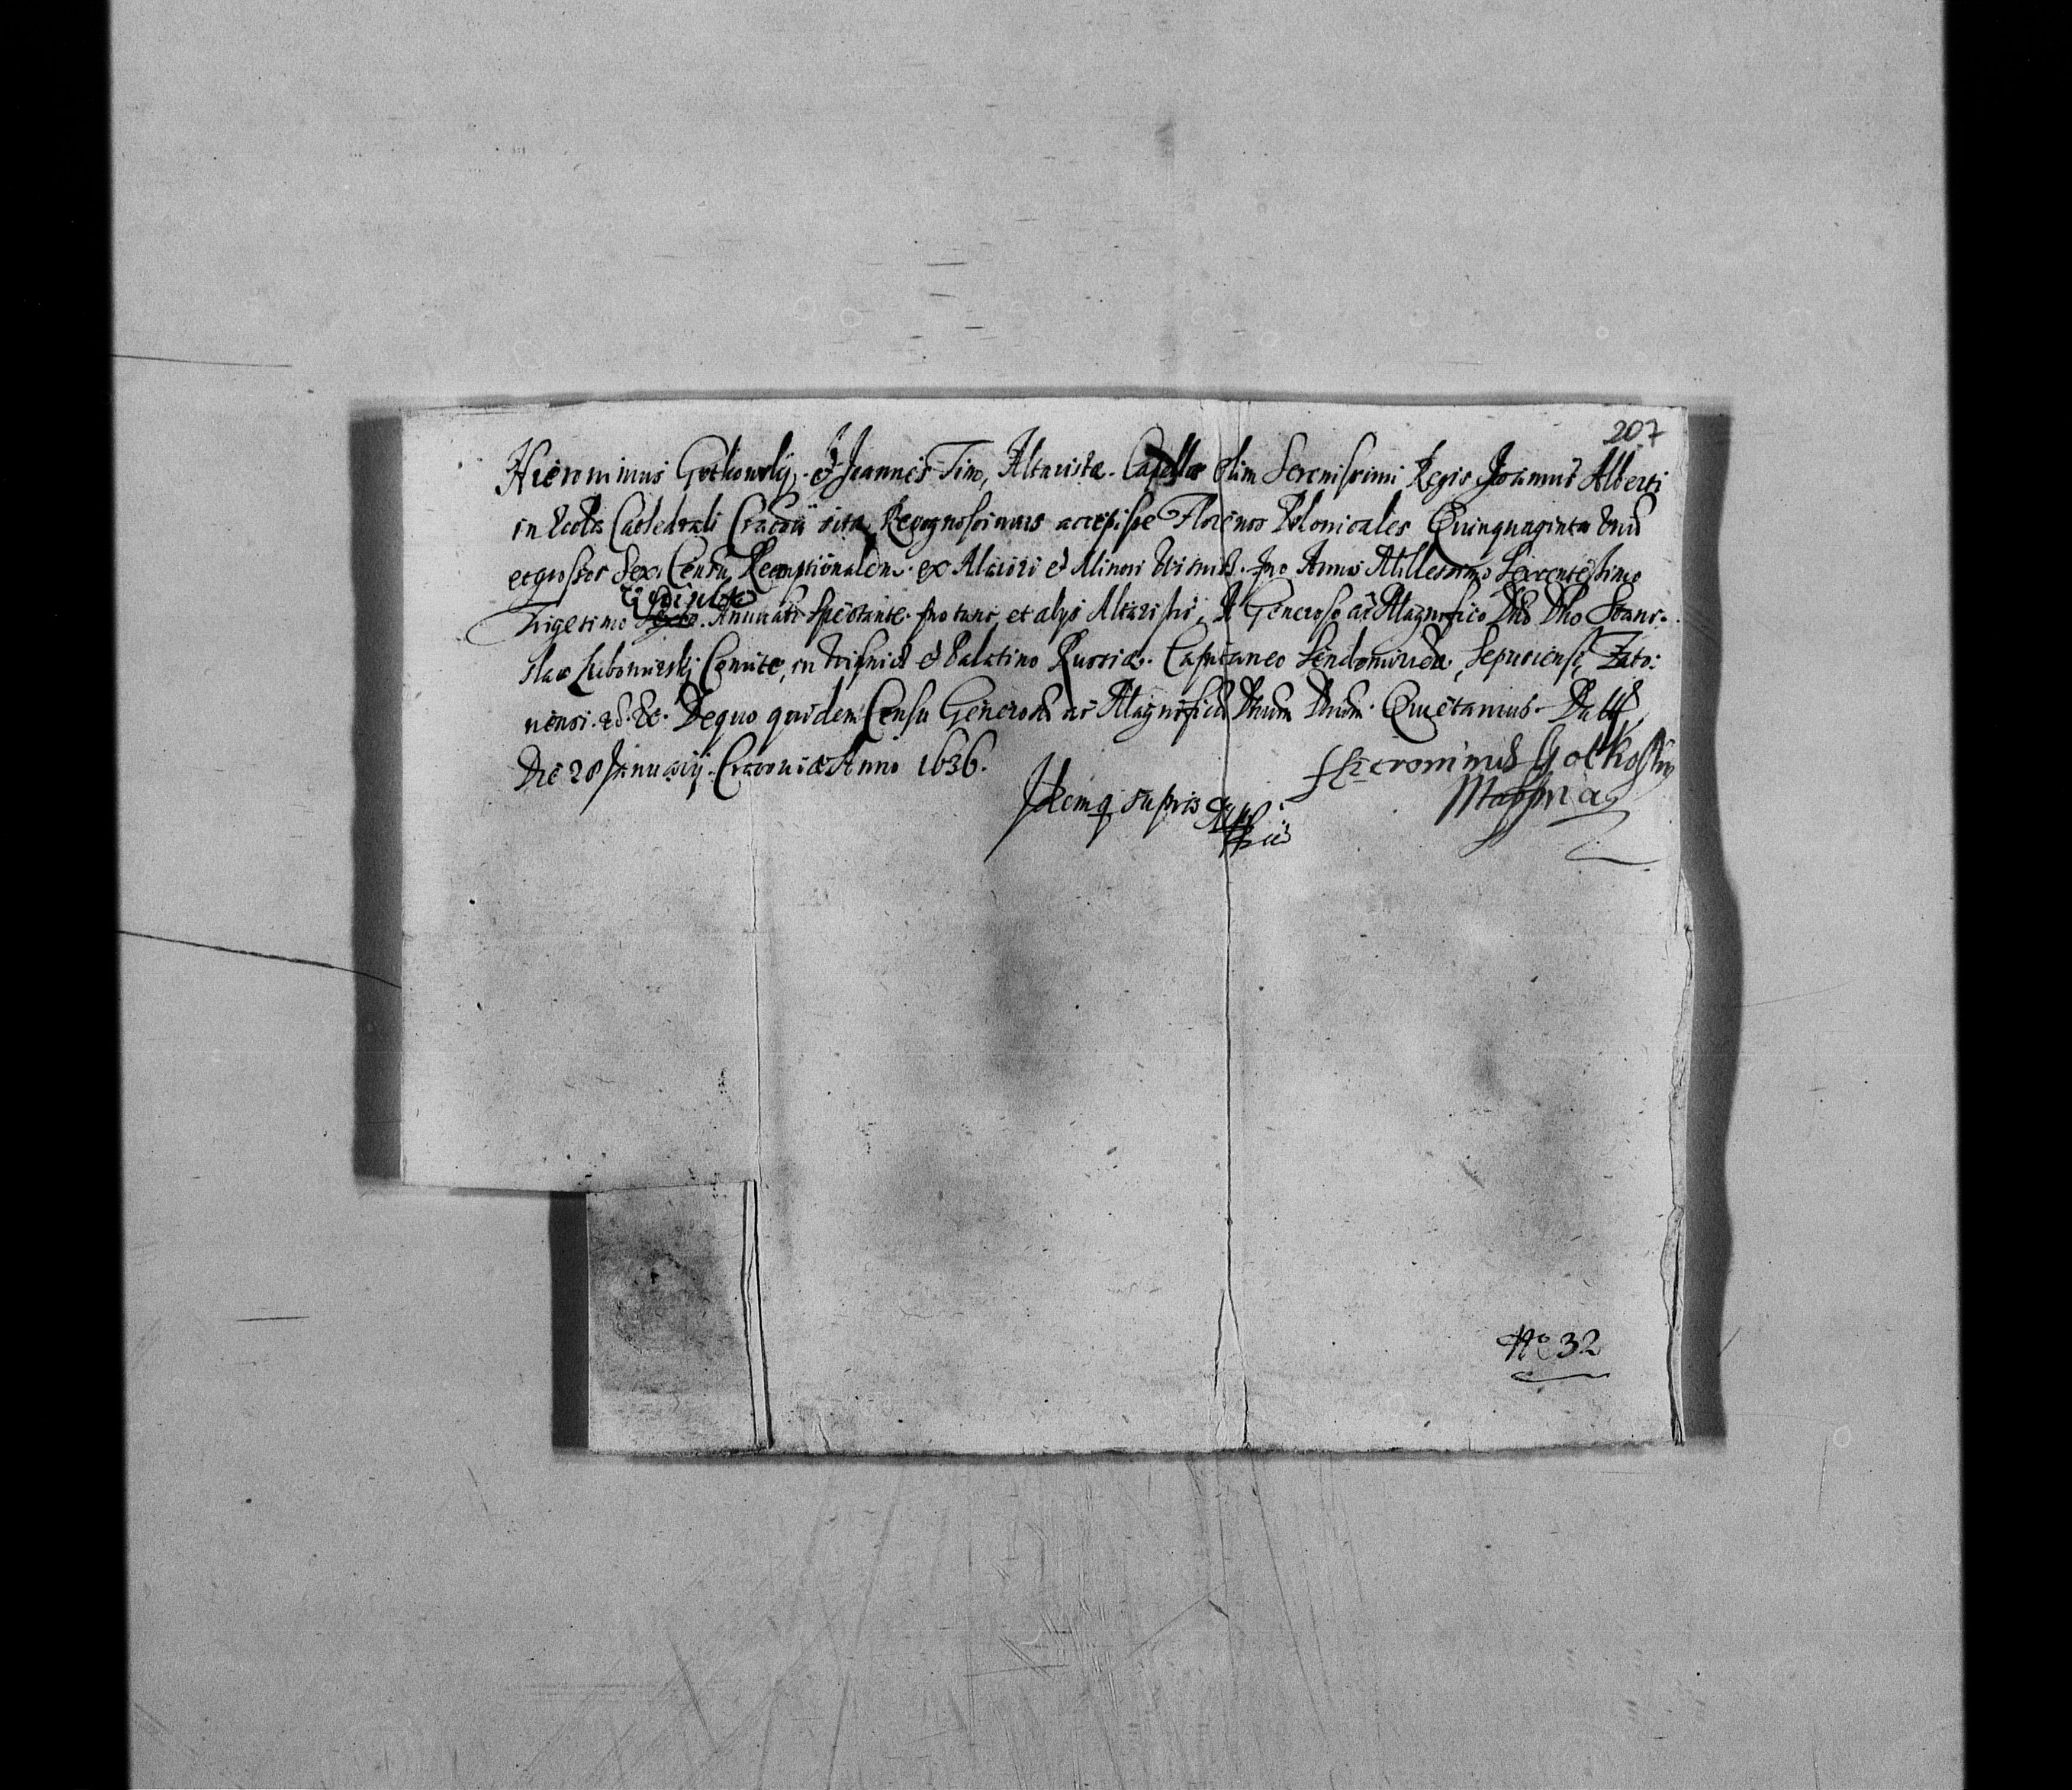 207
Hieronimus Gotkowsky, et Joannes Tino, Altaristæ Capellæ olim Serenissimi Regis Joannis Alberti
in Eccla Cathedrali Cracou sita, Recognoscimus accepisse Florenos Polonicales Quinquaginta Vnū
et grosses Sex, Census Reemptionalem ex Maiori et Minori Wisnicz. pro Anno Millessimo Sexcentesimo
Quinto
Trigesimo Sexto. Annuati spectante pro tunc, et alys Altaristis, A Generoso ac Magnifico Dno Dno Stani-
slao Lubomirski Comite, in Wisnicz et Palatino Russiæ. Capitaneo Sendomirien, Sepusiensi, Zato:
riensi. &. &. De quo quidem Censu Generosū ac Magnificū Dnum Dnum Quietamus. Datt
Die 28 Januarij. Cracouiæ Anno 1636.
Hieronimus Gotkosky
Mappria
Idem q supris
No 32